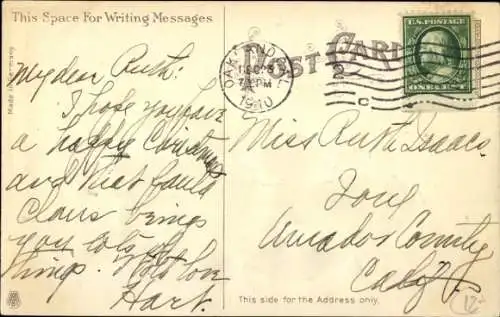 This Space For Writing Messages
My dear Ruth:
I hope you have
a happy Christmas
and that Santa
Claus brings
you lots of
things. Lots love
Hart.
Made in Germany
POST CARD
OAKLAND CAL.
7 PM
1910
2
U.S. POSTAGE
ONE CENT
Miss Ruth Isaacs
Ione
Amador County
Calif
This side for the Address only.
12-